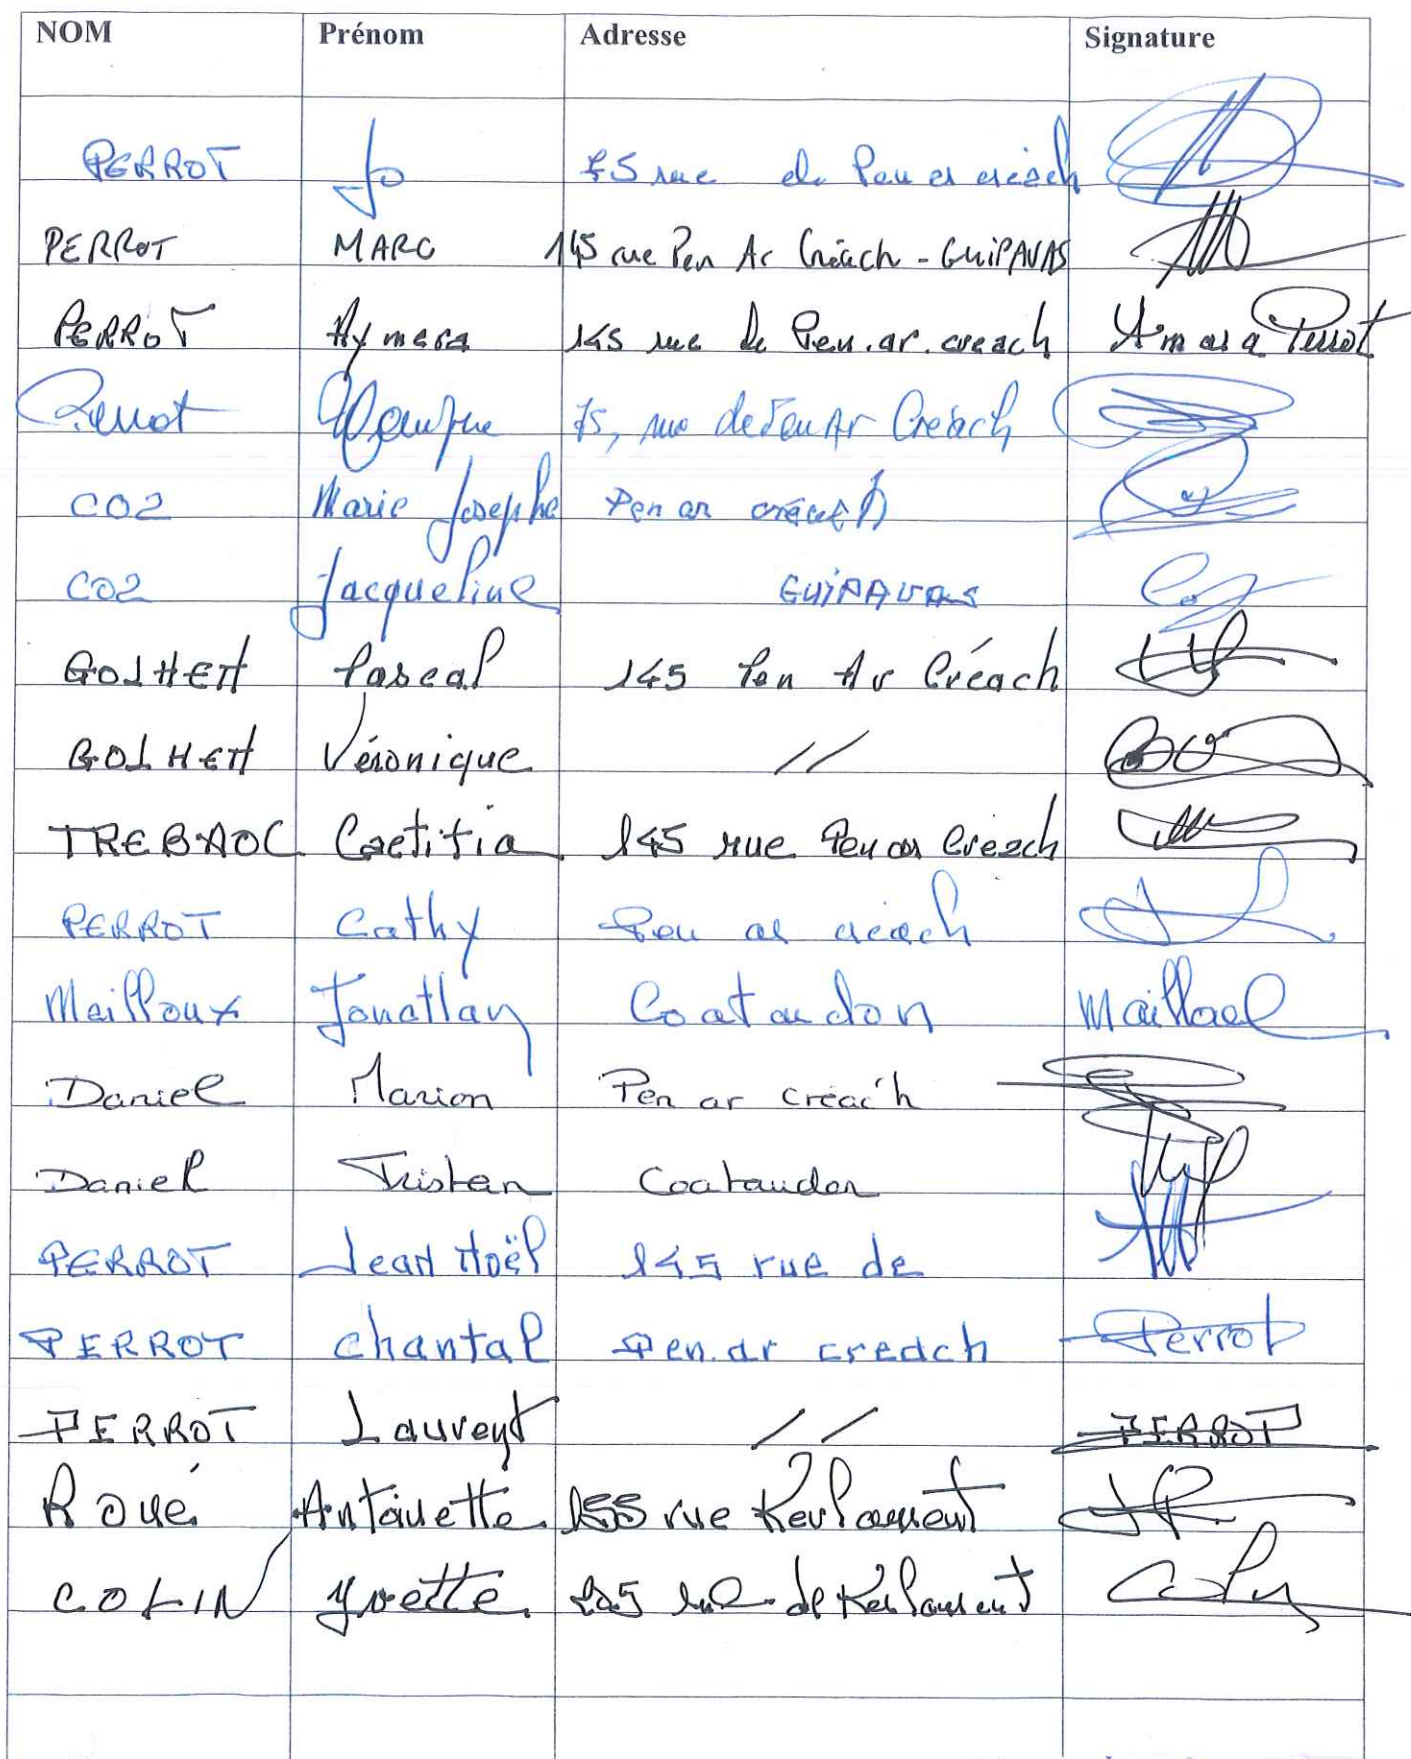 NOM Prénom Adresse Signature
PERROT Jo 75 rue de Pen ar créach
PERROT MARC 145 rue Pen Ar Créach - GUIPAVAS
PERROT 145 rue de Pen.ar.creach Amara Perrot
Perrot 75, rue de Pen Ar Créach
COZ Marie Josephe Pen ar créach
COZ Jacqueline GUIPAVAS
GOLHEN Pascal 145 Pen Ar Créach
GOLHEN Véronique //
TREBAOC Laetitia 145 rue Pen ar Creach
PERROT Cathy Pen ar creach
Mailloux Jonathan Coataudon
Daniel Marion Pen ar créac'h
Daniel Tristan Coataudon
PERROT Jean Noël 145 rue de
PERROT chantal Pen.ar creach Perrot
PERROT Laurent // PERROT
Roué Antoinette 155 rue Kerlaurent
COLIN Yvette rue de Kerlaurent